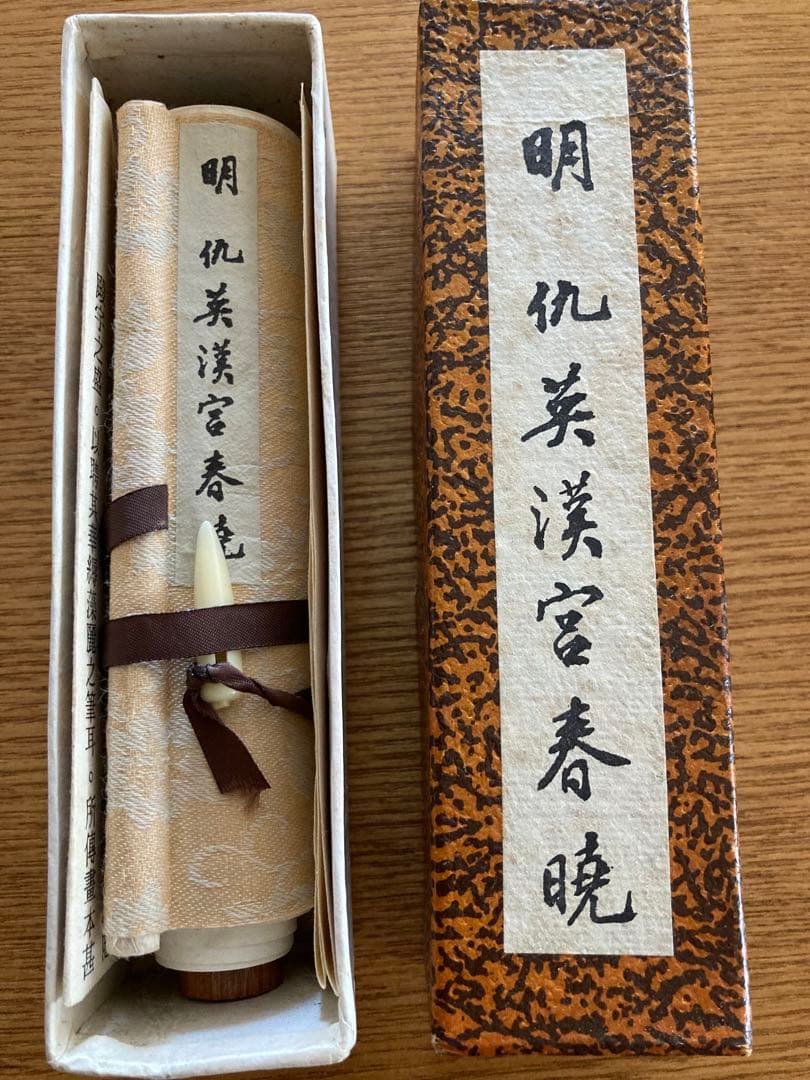 明 仇英漢宮春曉
明 仇英漢宮春曉
之筆耳。所傳畫本甚